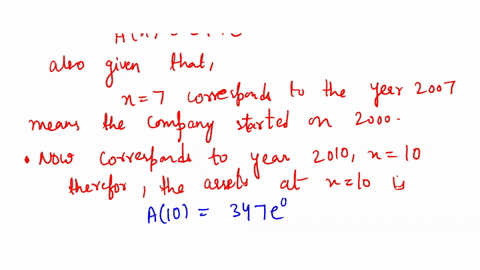 also given that,
n=7 corresponds to the year 2007
means the company started on 2000.
• Now corresponds to year 2010, n=10
therefor, the assets at n=10 is
A(10) = 347e⁰